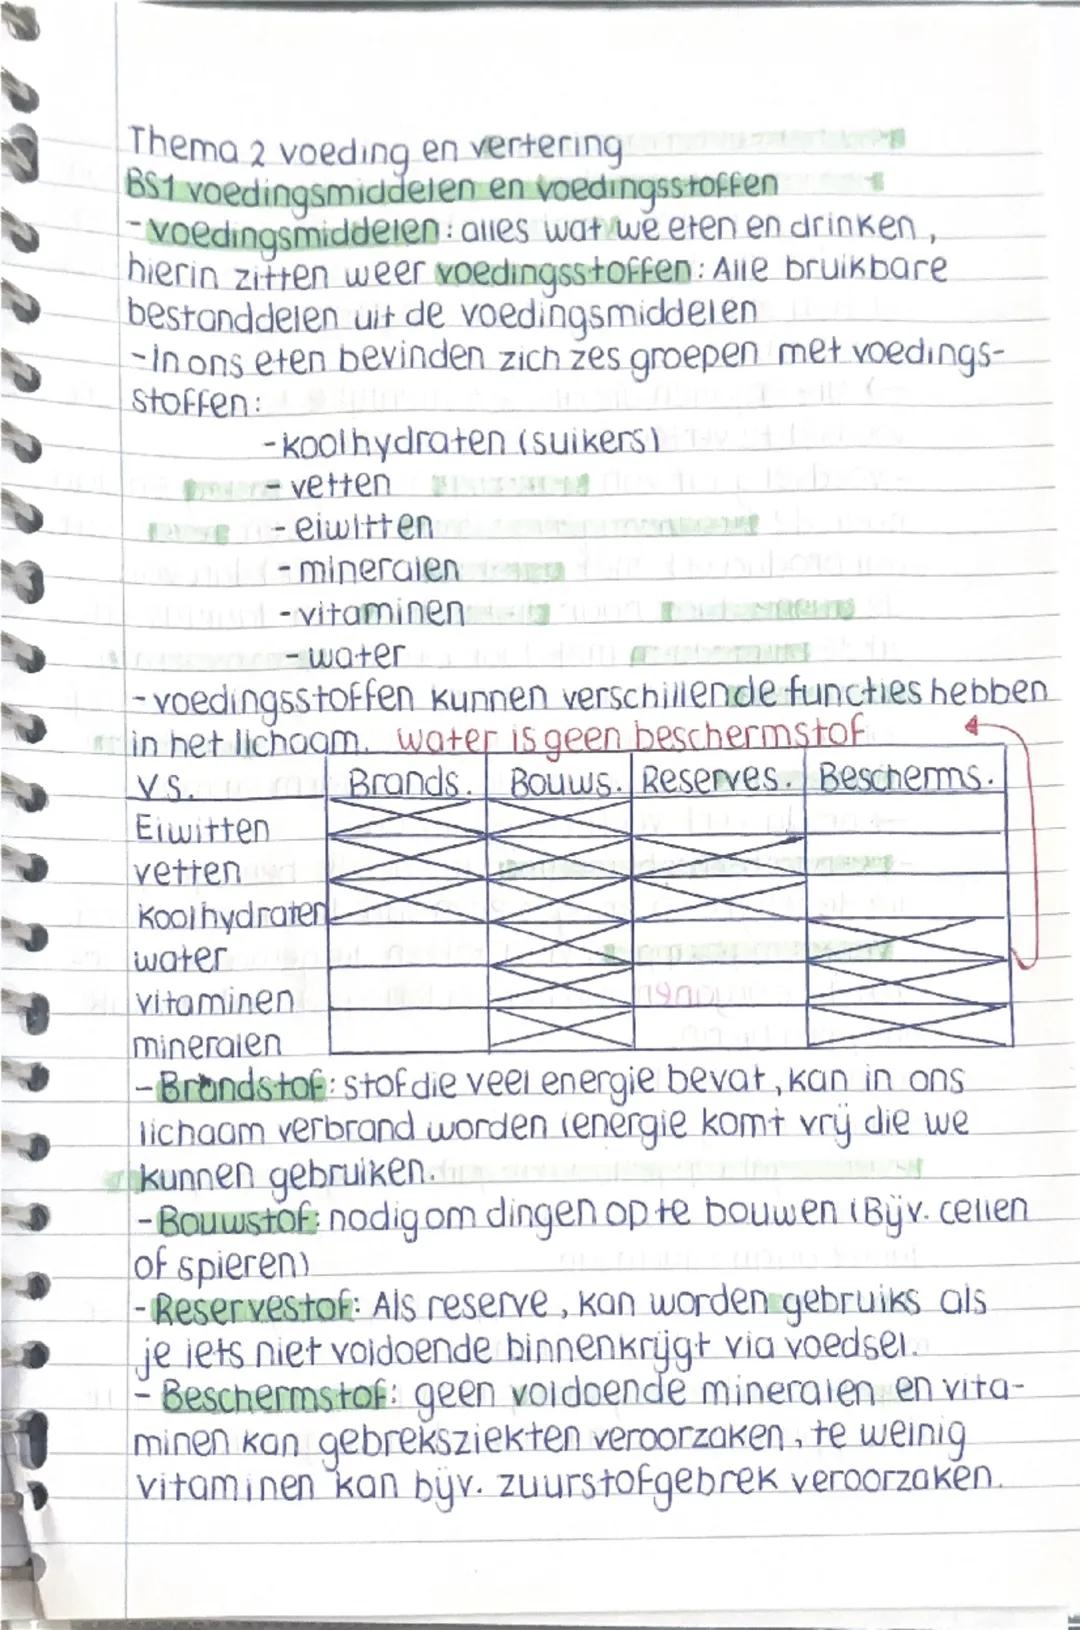 Thema 2 voeding en vertering
BS1 voedingsmiddelen en voedingsstoffen
- voedingsmiddelen: alles wat we eten en drinken,
hierin zitten weer voedingsstoffen: Alle bruikbare
bestanddelen uit de voedingsmiddelen
- In ons eten bevinden zich zes groepen met voedings-
stoffen:
- koolhydraten (suikers)
- vetten
- eiwitten
- mineralen
- vitaminen
- water
- voedingsstoffen kunnen verschillende functies hebben
in het lichaam. water is geen beschermstof
V.S. Brands. Bouws. Reserves. Bescherms.
Eiwitten
vetten
koolhydraten
water
vitaminen
mineralen
- Brandstof: stof die veel energie bevat, kan in ons
lichaam verbrand worden (energie komt vrij die we
kunnen gebruiken.
- Bouwstof: nodig om dingen op te bouwen (Bijv. cellen
of spieren)
- Reservestof: Als reserve, kan worden gebruiks als
je iets niet voldoende binnenkrijgt via voedsel.
- Beschermstof: geen voldoende mineralen en vita-
minen kan gebreksziekten veroorzaken, te weinig
vitaminen kan bijv. zuurstofgebrek veroorzaken.